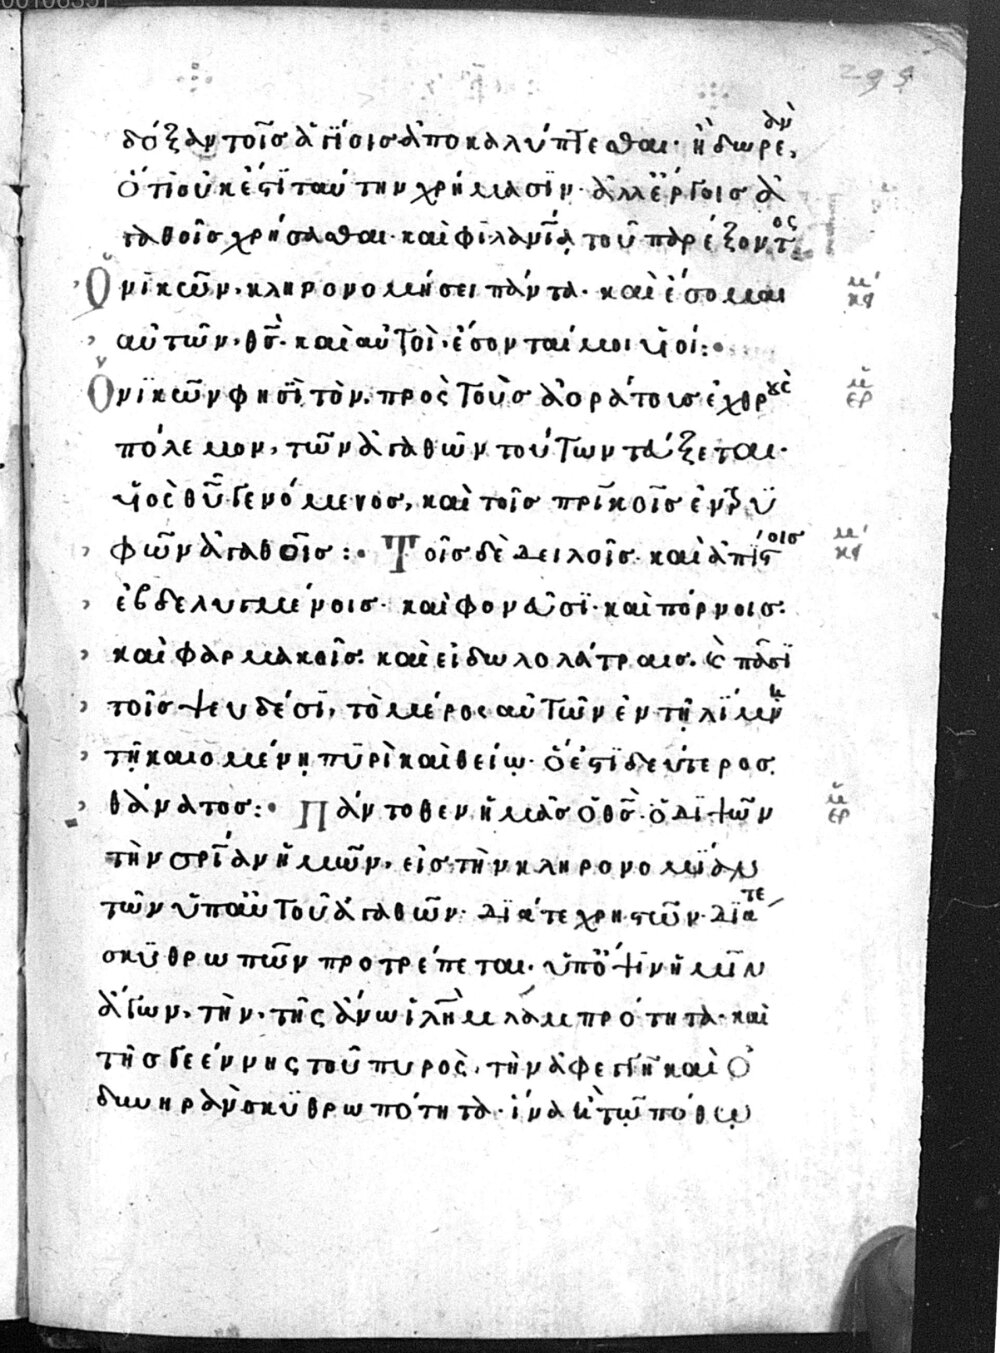 299
δόξαν τοῖσ ἁγίοισ ἀποκαλύπτεσθαι· ἢ δωρεὰν,
ὅτι οὐκ ἔστι ταύτην χρήμασϊν· ἀλλ' ἔργοισ ἀ
γαθοῖσ χρήσασθαι· καὶ φιλανΐα τοῦ παρέξοντος
Ὁ νικῶν, κληρονομήσει πάντα· καὶ ἔσομαι κείμ
αὐτῶν, θσ̅· καὶ αὐτοὶ, ἔσονταί μοι ὑοί:·
Ὁ νϊκῶν φησῒ τὸν, πρὸς τοὺσ ἀοράτοισ ἐχθροὺς ἑρμ
πόλεμον, τῶν ἀγαθῶν τούτων τεύξεται·
ὑὸς θυ̅ γενόμενοσ, καὶ τοῖσ πρικοῖσ ἐντρυ
φῶν ἀγαθοῖσ:· Τοῖσ δὲ δειλοῖσ· καὶ ἀπίστοισ κείμ
ἐβδελυγμένοισ· καὶ φονεῦσϊ· καὶ πόρνοισ·
καὶ φαρμακοῖσ· καὶ εἰδωλολάτραισ· καὶ πᾶσϊ
τοῖσ ψευδέσϊ, τὸ μέροσ αὐτῶν ἐν τῇ λϊμνη
τῇ καιομένῃ πυρὶ καὶ θείῳ· ὅ ἐστϊ δεύτεροσ
θάνατοσ:· Πάντοθεν ἡμᾶσ ὁ θσ̅· ὁ διψῶν ἑρμ
τὴν σρΐαν ἡμῶν, εἰσ τὴν κληρονομΐαν
τῶν ὑπ' αὐτοῦ ἀγαθῶν· δϊά τε χρηστῶν· δϊά τε
σκυθρωπῶν προτρέπεται· ὑπ' ὄψϊν ἡμῖν
ἄγων, τὴν, τῆς ἄνω ἰλη̅μ λαμπρότητα· καὶ
τῆσ γεέννης τοῦ πυρὸς, τὴν ἀφεγγῆ καὶ ὀ
δυνηρὰν σκυθρωπότητα· ἵνα ἢ τῷ πόθῳ